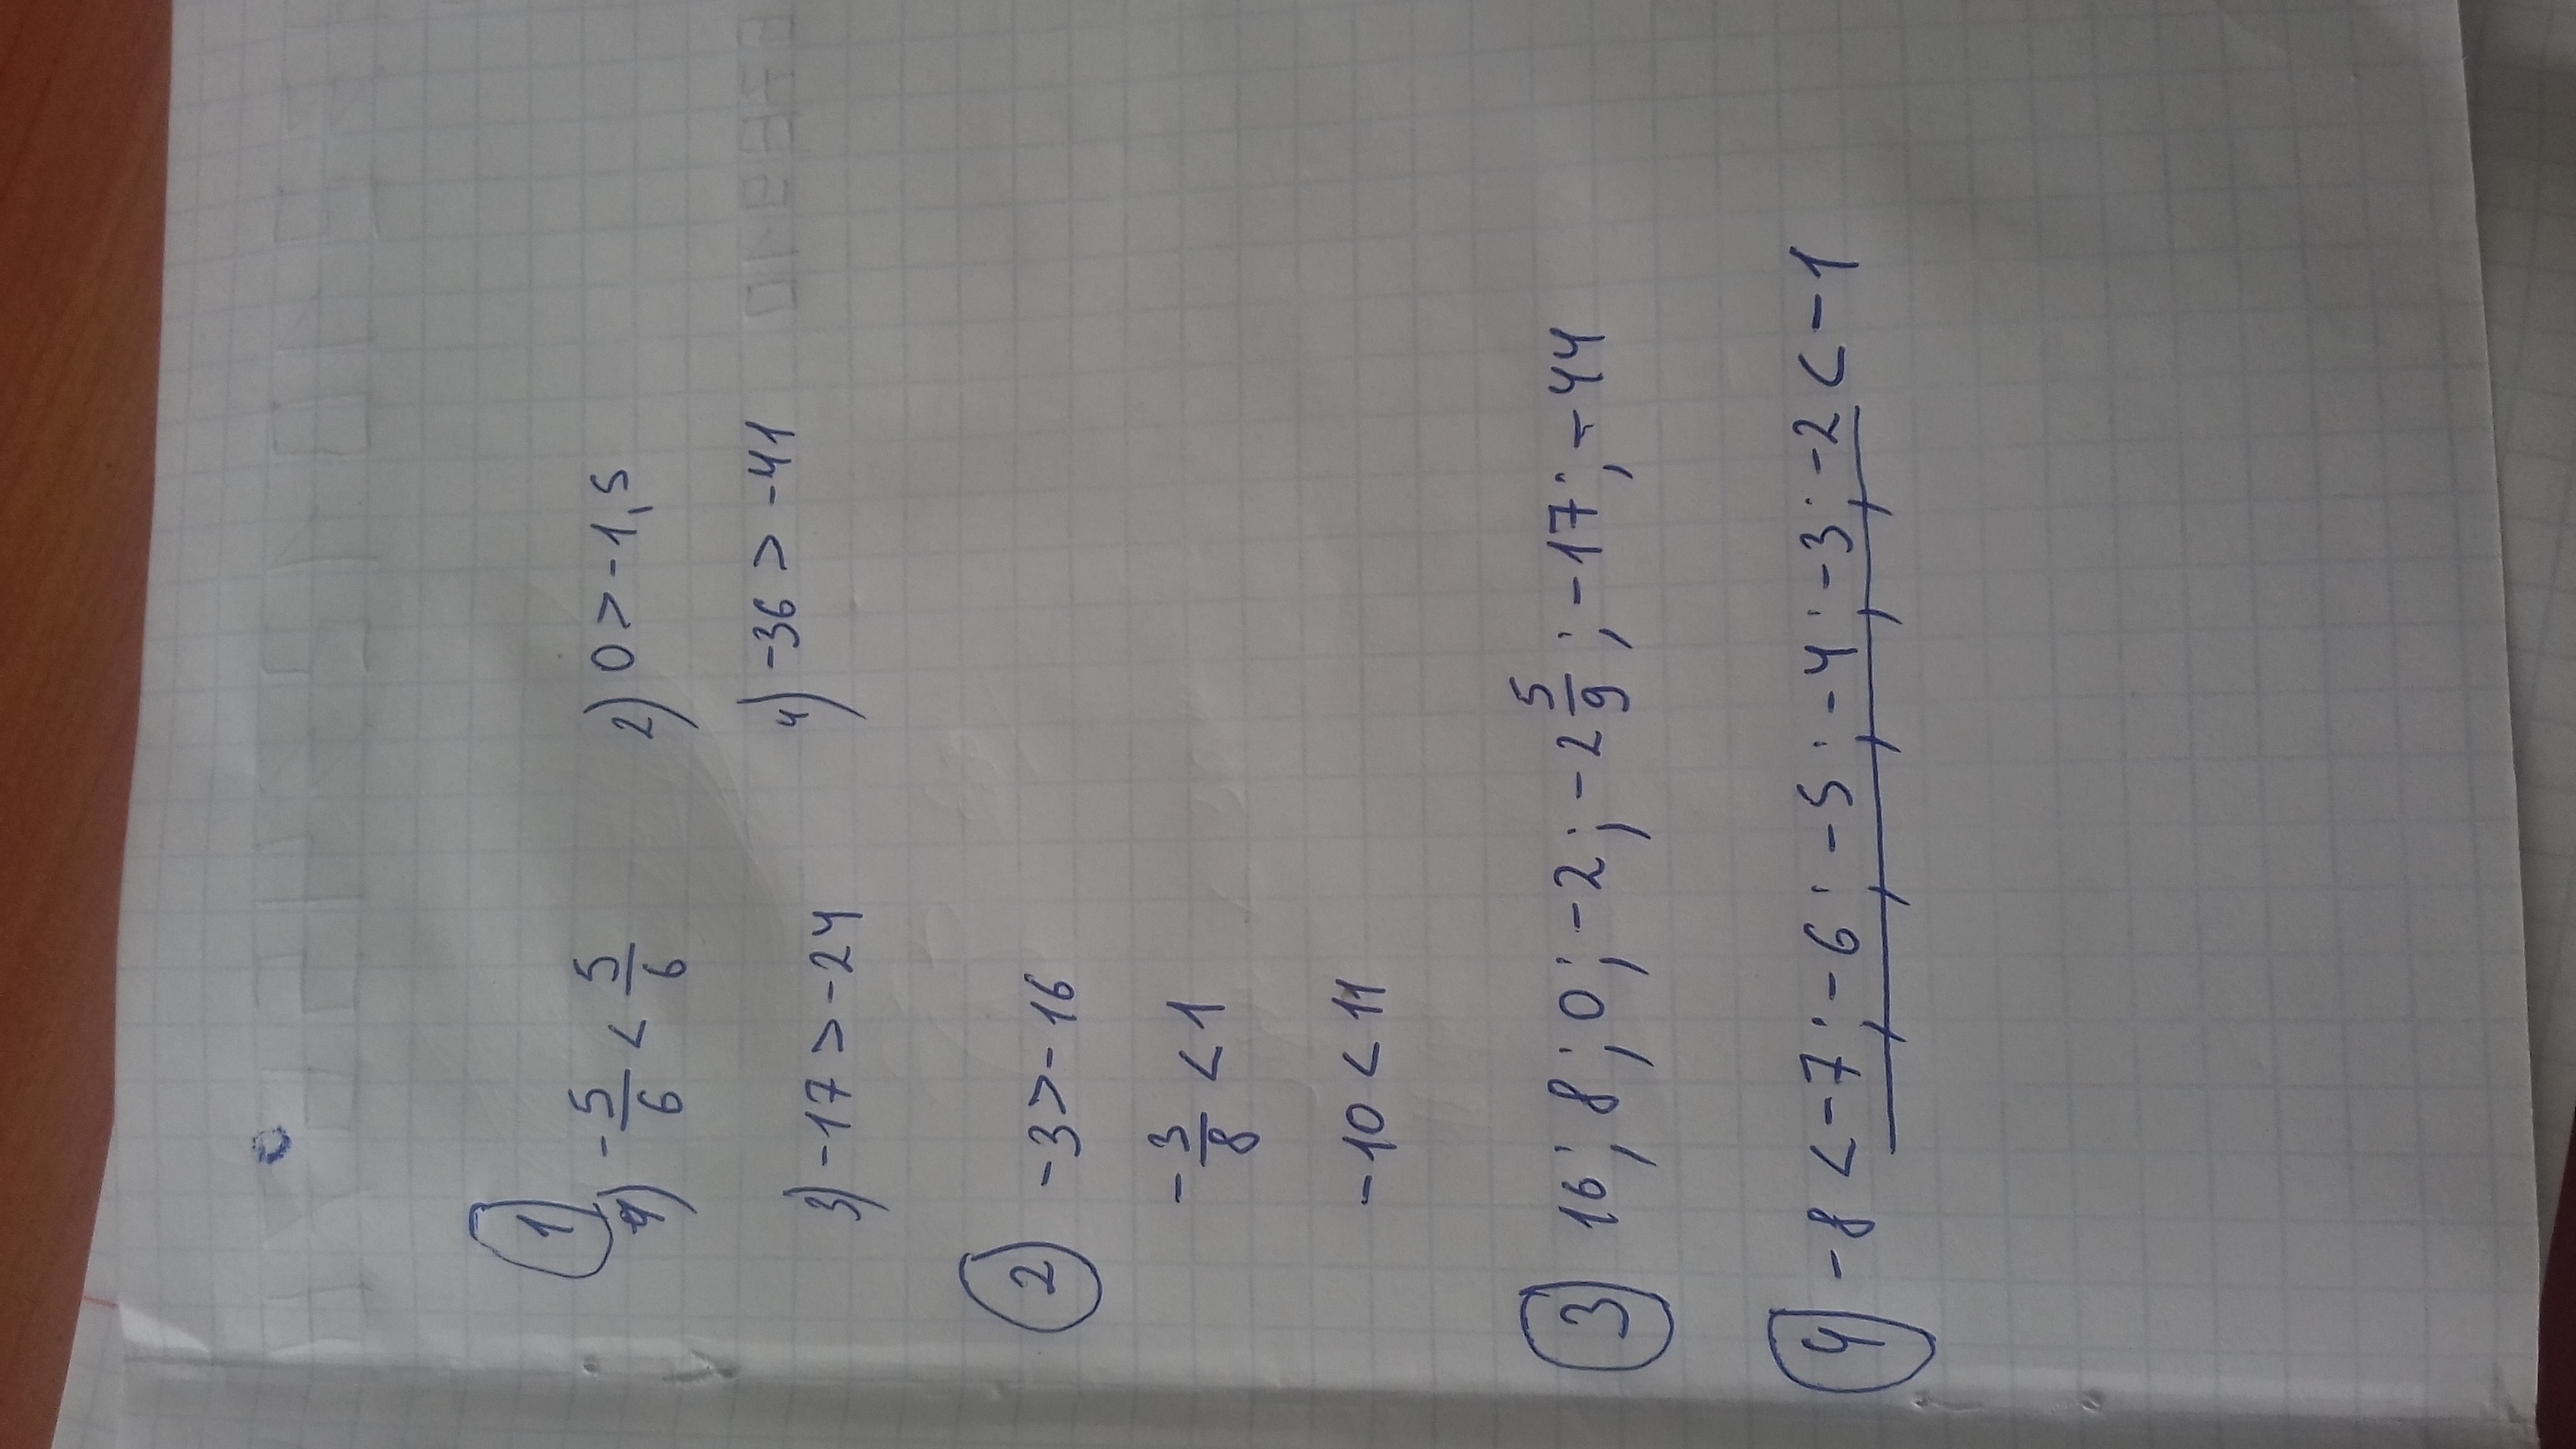 1
1) -5/6 < 5/6 2) 0 > -1,5
3) -17 > -24 4) -36 > -41
2 -3 > -16
-3/8 < 1
-10 < 11
3 16; 8; 0; -2; -2 5/9; -17; -44
4 -8 < -7; -6; -5; -4; -3; -2 < -1